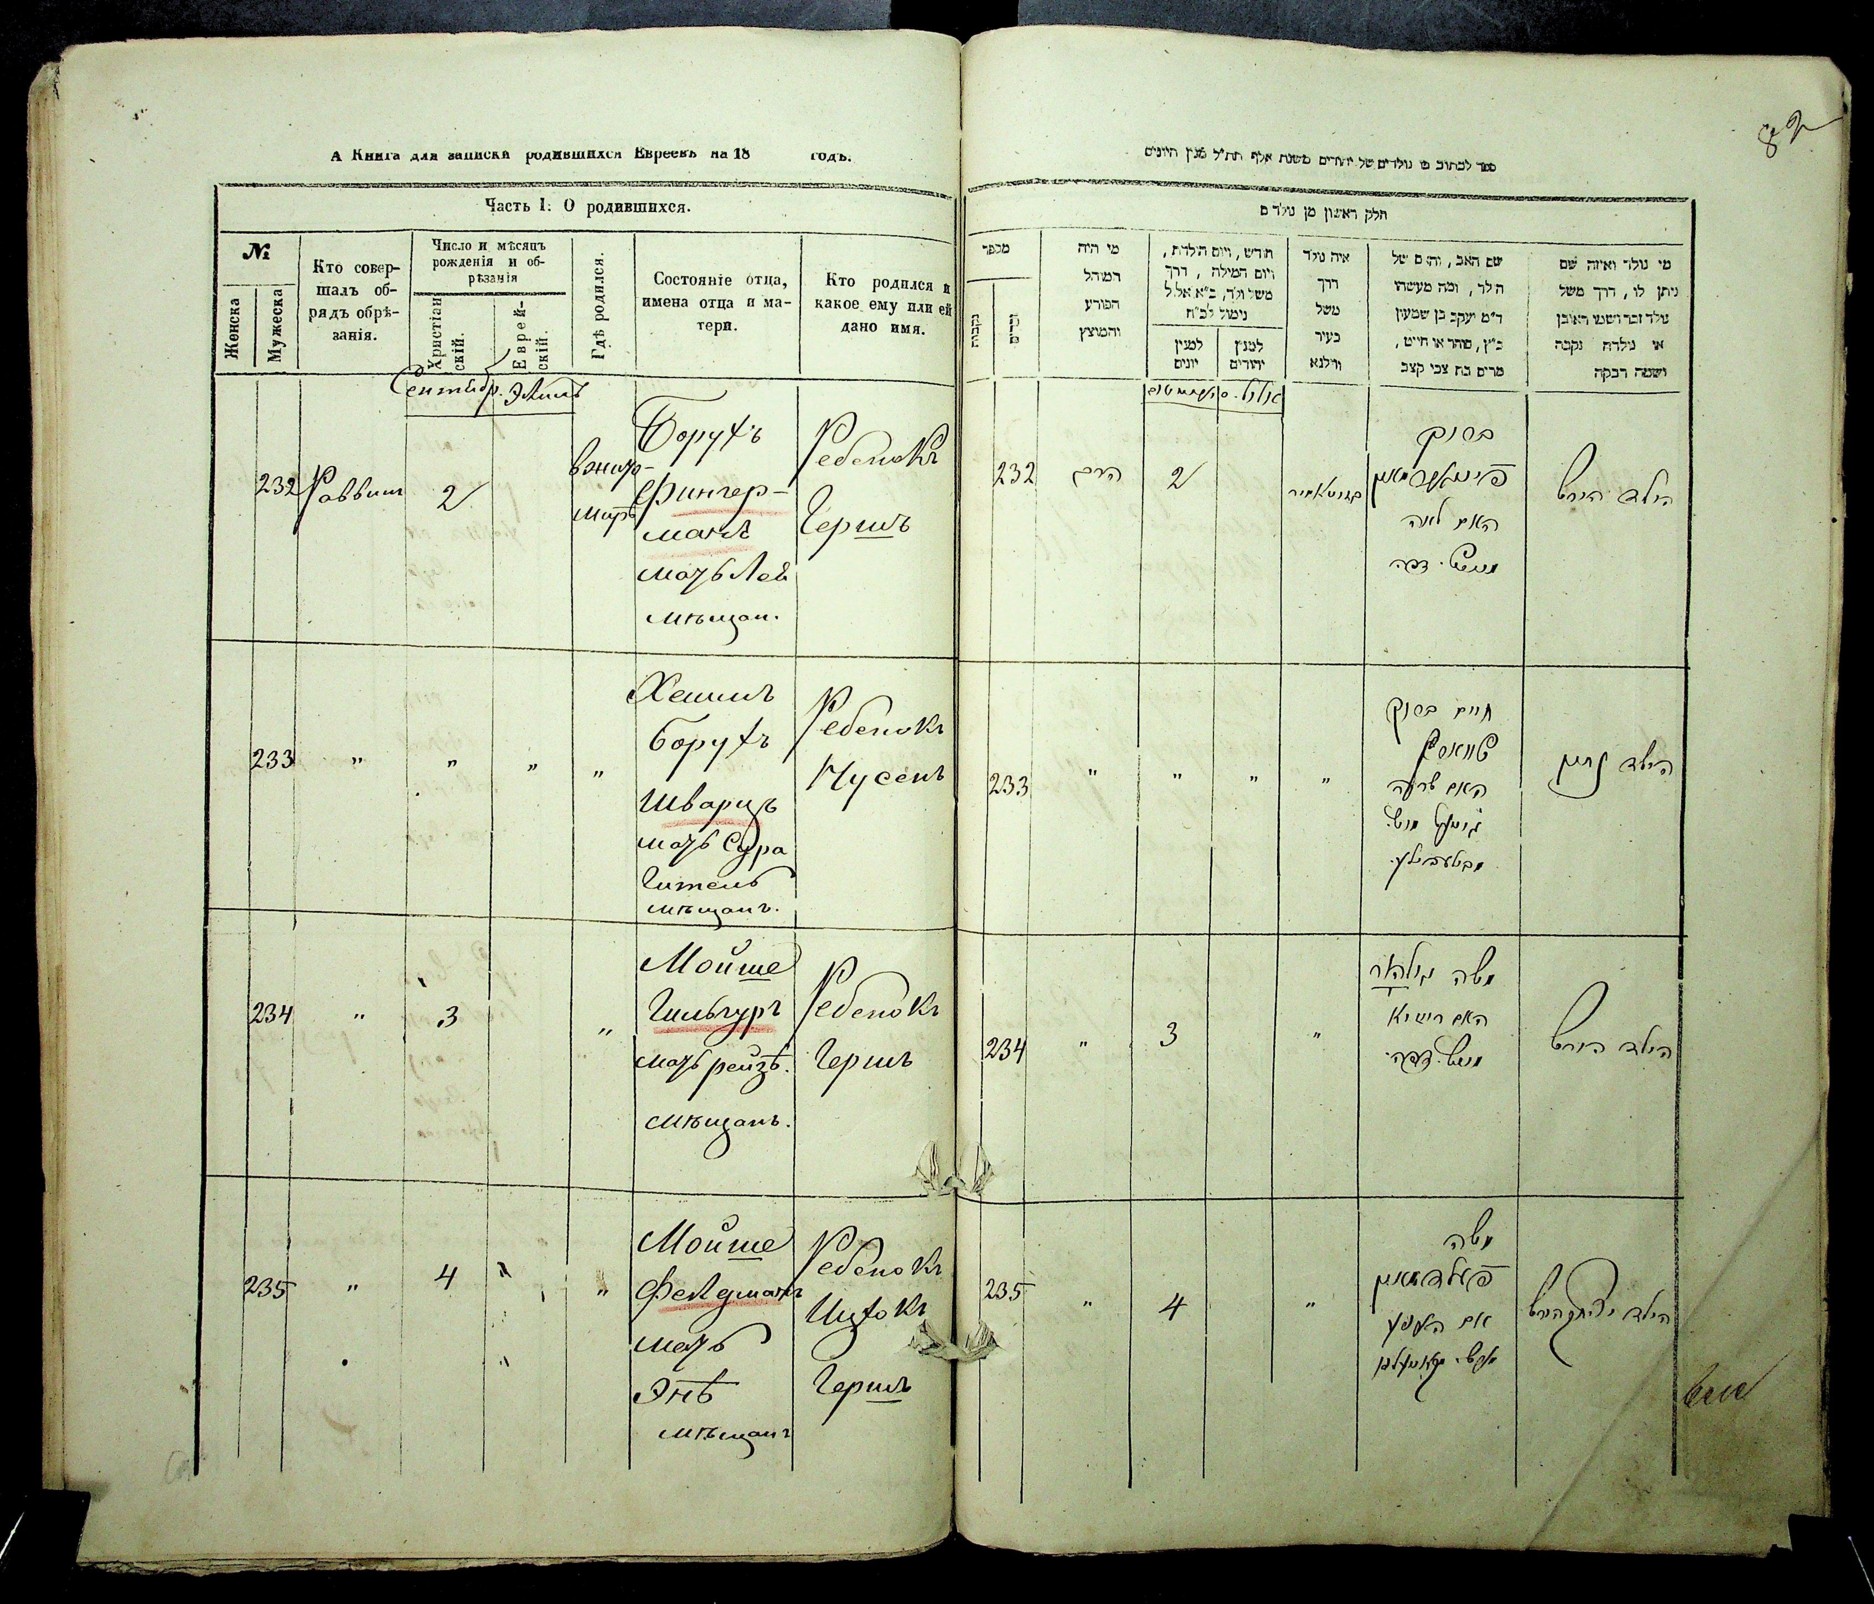 А Книга для записки родившихся Евреевъ на 18 годъ.
Часть I. О родившихся.
№
Женска
Мужеска
Кто совер-
шалъ об-
рядъ обрѣ-
занія.
Число и мѣсяцъ
рожденія и об-
рѣзанія
Христіан
скій.
Еврей-
скій.
Гдѣ родился.
Состояніе отца,
имена отца и ма-
тери.
Кто родился и
какое ему или ей
дано имя.
Сентябр. Элюлъ
232
Раввинъ
2
Борухъ
Фингер-
манъ
мать Лея
мѣщан.
Ребенокъ
Гершъ
233
"
"
"
"
Хаимъ
Борухъ
Шварцъ
мать Сура
Гитель
мѣщанъ.
Ребенокъ
Нусенъ
234
"
3
"
Мойше
мать рейзѣ.
мѣщанъ.
Ребенокъ
Гершъ
235
"
4
"
"
Мойше
Фелдманъ
мать
Энѣ
мѣщанъ
Ребенокъ
Ицхокъ
Гершъ
82
ספר לכתוב בו נולדים של יהודים משנת אלף תת״ל מנין היונים
חלק ראשון מן נולדים
מספר
נקבות
זכרים
מי היה
המוהל
הפורע
והמוצץ
חודש, ויום הולדת,
ויום המילה, דרך
משל ולד, כ״א אלול
נימול לכ״ח
למנין
יונים
למנין
יהודים
איה נולד
דרך
משל
בעיר
ווילנא
שם האב, והאם של
הלד, ומה מעשהו
ד״מ יעקב בן שמעון
כ״ץ, סוחר או חייט,
מרים בת צבי קצב
מי נולד ואיזה שם
ניתן לו, דרך משל
נולד זכר ושמו ראובן
או נולדה נקבה
ושמה רבקה
232
הרב
2
ברוך
פינגערמאן
האם לאה
הילד הירש
233
"
"
"
"
חיים ברוך
שווארץ
האם שרה
הילד נתן
234
"
3
"
משה
האם רייזא
הילד הירש
235
"
4
"
משה
פעלדמאן
הילד יצחק הירש